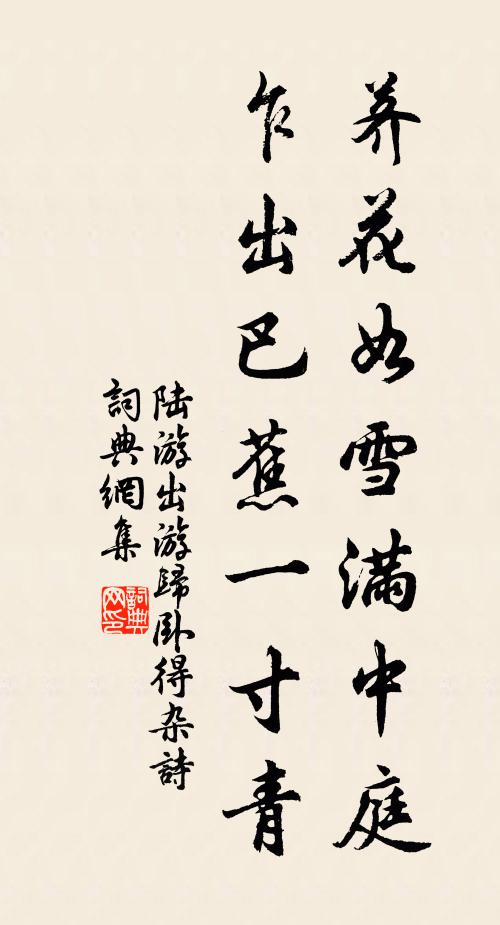 荠花如雪满中庭
乍出巴蕉一寸青
陆游出游歸卧得杂詩
詞典網集
詞典网印